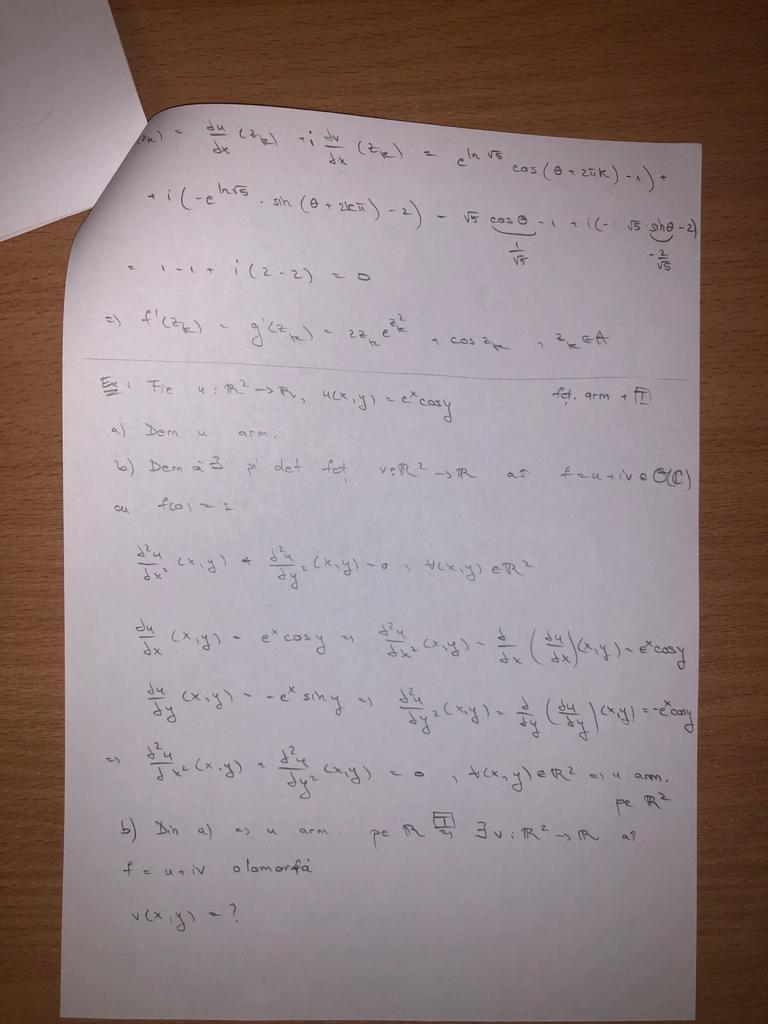 (z_k) = du/dx (z_k) + i dv/dx (z_k) = e^{ln √5} cos(θ + 2πk) - 1) +
+ i(-e^{ln √5} · sin (θ + 2kπ) - 2) = √5 cos θ - 1 + i(- √5 sin θ - 2)
1/√5 -2/√5
= 1 - 1 + i(2 - 2) = 0
=> f'(z_k) = g'(z_k) = 2z_k e^{z_k^2} + cos z_k , z_k ∈ A
Ex: Fie u : ℝ² → ℝ, u(x,y) = e^x cos y fct. arm + T
a) Dem u arm.
b) Dem că ∃ și det fct. v: ℝ² → ℝ aî f = u + iv ∈ O(ℂ)
cu f(0) = 1
d²u/dx² (x,y) + d²u/dy² (x,y) = 0 , ∀(x,y) ∈ ℝ²
du/dx (x,y) = e^x cos y => d²u/dx² (x,y) = d/dx (du/dx)(x,y) = e^x cos y
du/dy (x,y) = -e^x sin y => d²u/dy² (x,y) = d/dy (du/dy)(x,y) = -e^x cos y
=> d²u/dx² (x,y) + d²u/dy² (x,y) = 0 , ∀(x,y) ∈ ℝ² => u arm.
pe ℝ²
b) Din a) => u arm. pe ℝ T => ∃ v : ℝ² → ℝ aî.
f = u + iv olomorfă
v(x,y) = ?